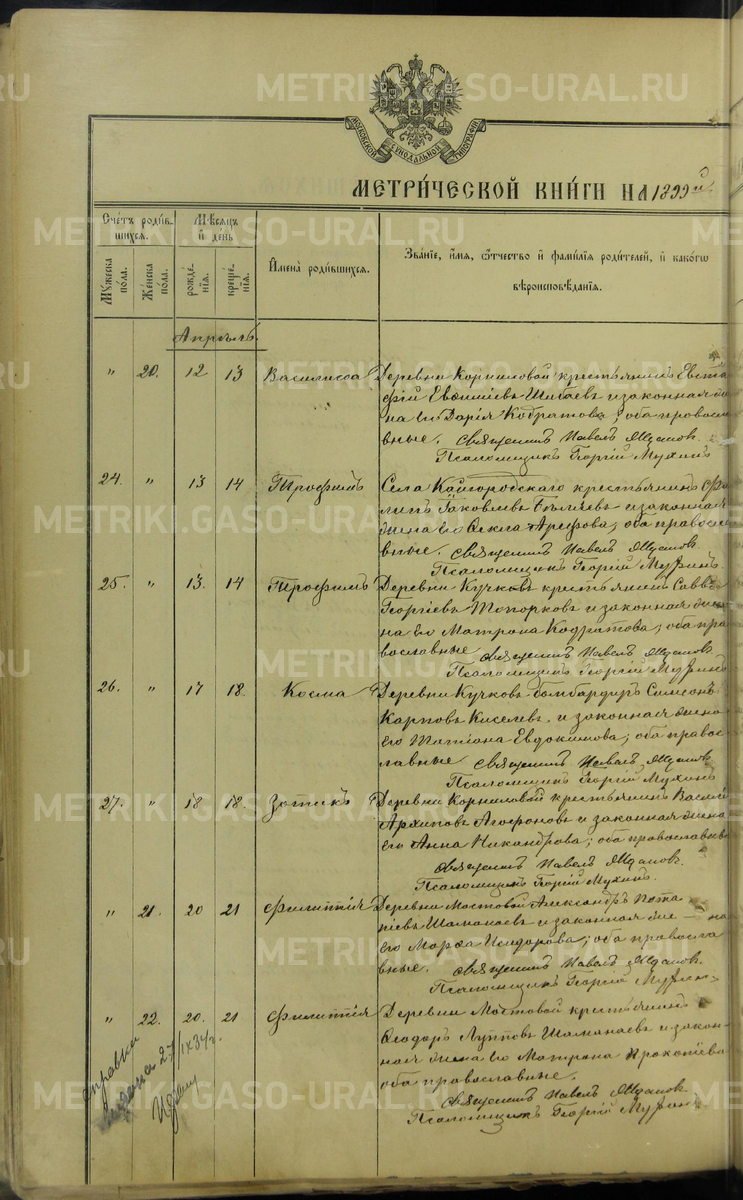 METRIKI.GASO-URAL.RU
МОСКОВСКОЙ СѴНОДАЛЬНОЙ ТИПОГРАФІИ
МЕТРИ́ЧЕСКОЙ КНИ́ГИ НА 1899 й
Счетъ роди́вшихся.
Мѣсяцъ и день
Имена̀ роди́вшихся.
Зва́ніе, и́мя, ѻ́тчество и фами́лія роди́телей, и како́гѡ вѣроисповѣ́данія.
Му́жеска по́ла.
Же́нска по́ла.
рожде́нія.
креще́нія.
Апрѣль.
" 20. 12 13 Василисса Деревни Корниловой крестьянинъ Евста
фій Евѳиміевъ Шибаевъ и законная же
на его Дарія Кодратова; оба правосла
вные. Священникъ Павелъ
Псаломщикъ Георгій Мухинъ
24. " 13 14 Трофимъ Села Кайгородскаго крестьянинъ Фи
липъ Іаковлевъ Бѣляевъ и законная
жена его Арефова; оба правосла
вные. Священникъ Павелъ
Псаломщикъ Георгій Мухинъ
25. " 13. 14 Трофимъ Деревни Кучковъ крестьянинъ Савва
Георгіевъ Топорковъ и законная же
на его Матрона Кодратова; оба пра
вославные Священникъ Павелъ
Псаломщикъ Георгій Мухинъ
26. " 17 18. Косма Деревни Кучковъ бомбардиръ Симеонъ
Карповъ Киселевъ и законная жена
его Татіана Евдокимова; оба правос
лавные Священникъ Павелъ
Псаломщикъ Георгій Мухинъ
27. " 18 18. Зотикъ Деревни Корниловой крестьянинъ Василій
Архиповъ Агафоновъ и законная жена
его Анна Никандрова; оба православные
Священникъ Павелъ
Псаломщикъ Георгій Мухинъ.
" 21. 20 21 Филиппія Деревни Мостовой Александръ Пота
піевъ Шаманаевъ и законная же на
его Марѳа Исидорова; оба правосла
вные. Священникъ Павелъ
Псаломщикъ Георгій Мухинъ
" 22. 20. 21 Филиппія Деревни Мостовой крестьянинъ
Ѳеодоръ Лупповъ Шаманаевъ и закон
ная жена его Матрона Прокопіева
оба православные.
Священникъ Павелъ
Псаломщикъ Георгій Мухинъ
справка
выдана 27/IX 34 г.